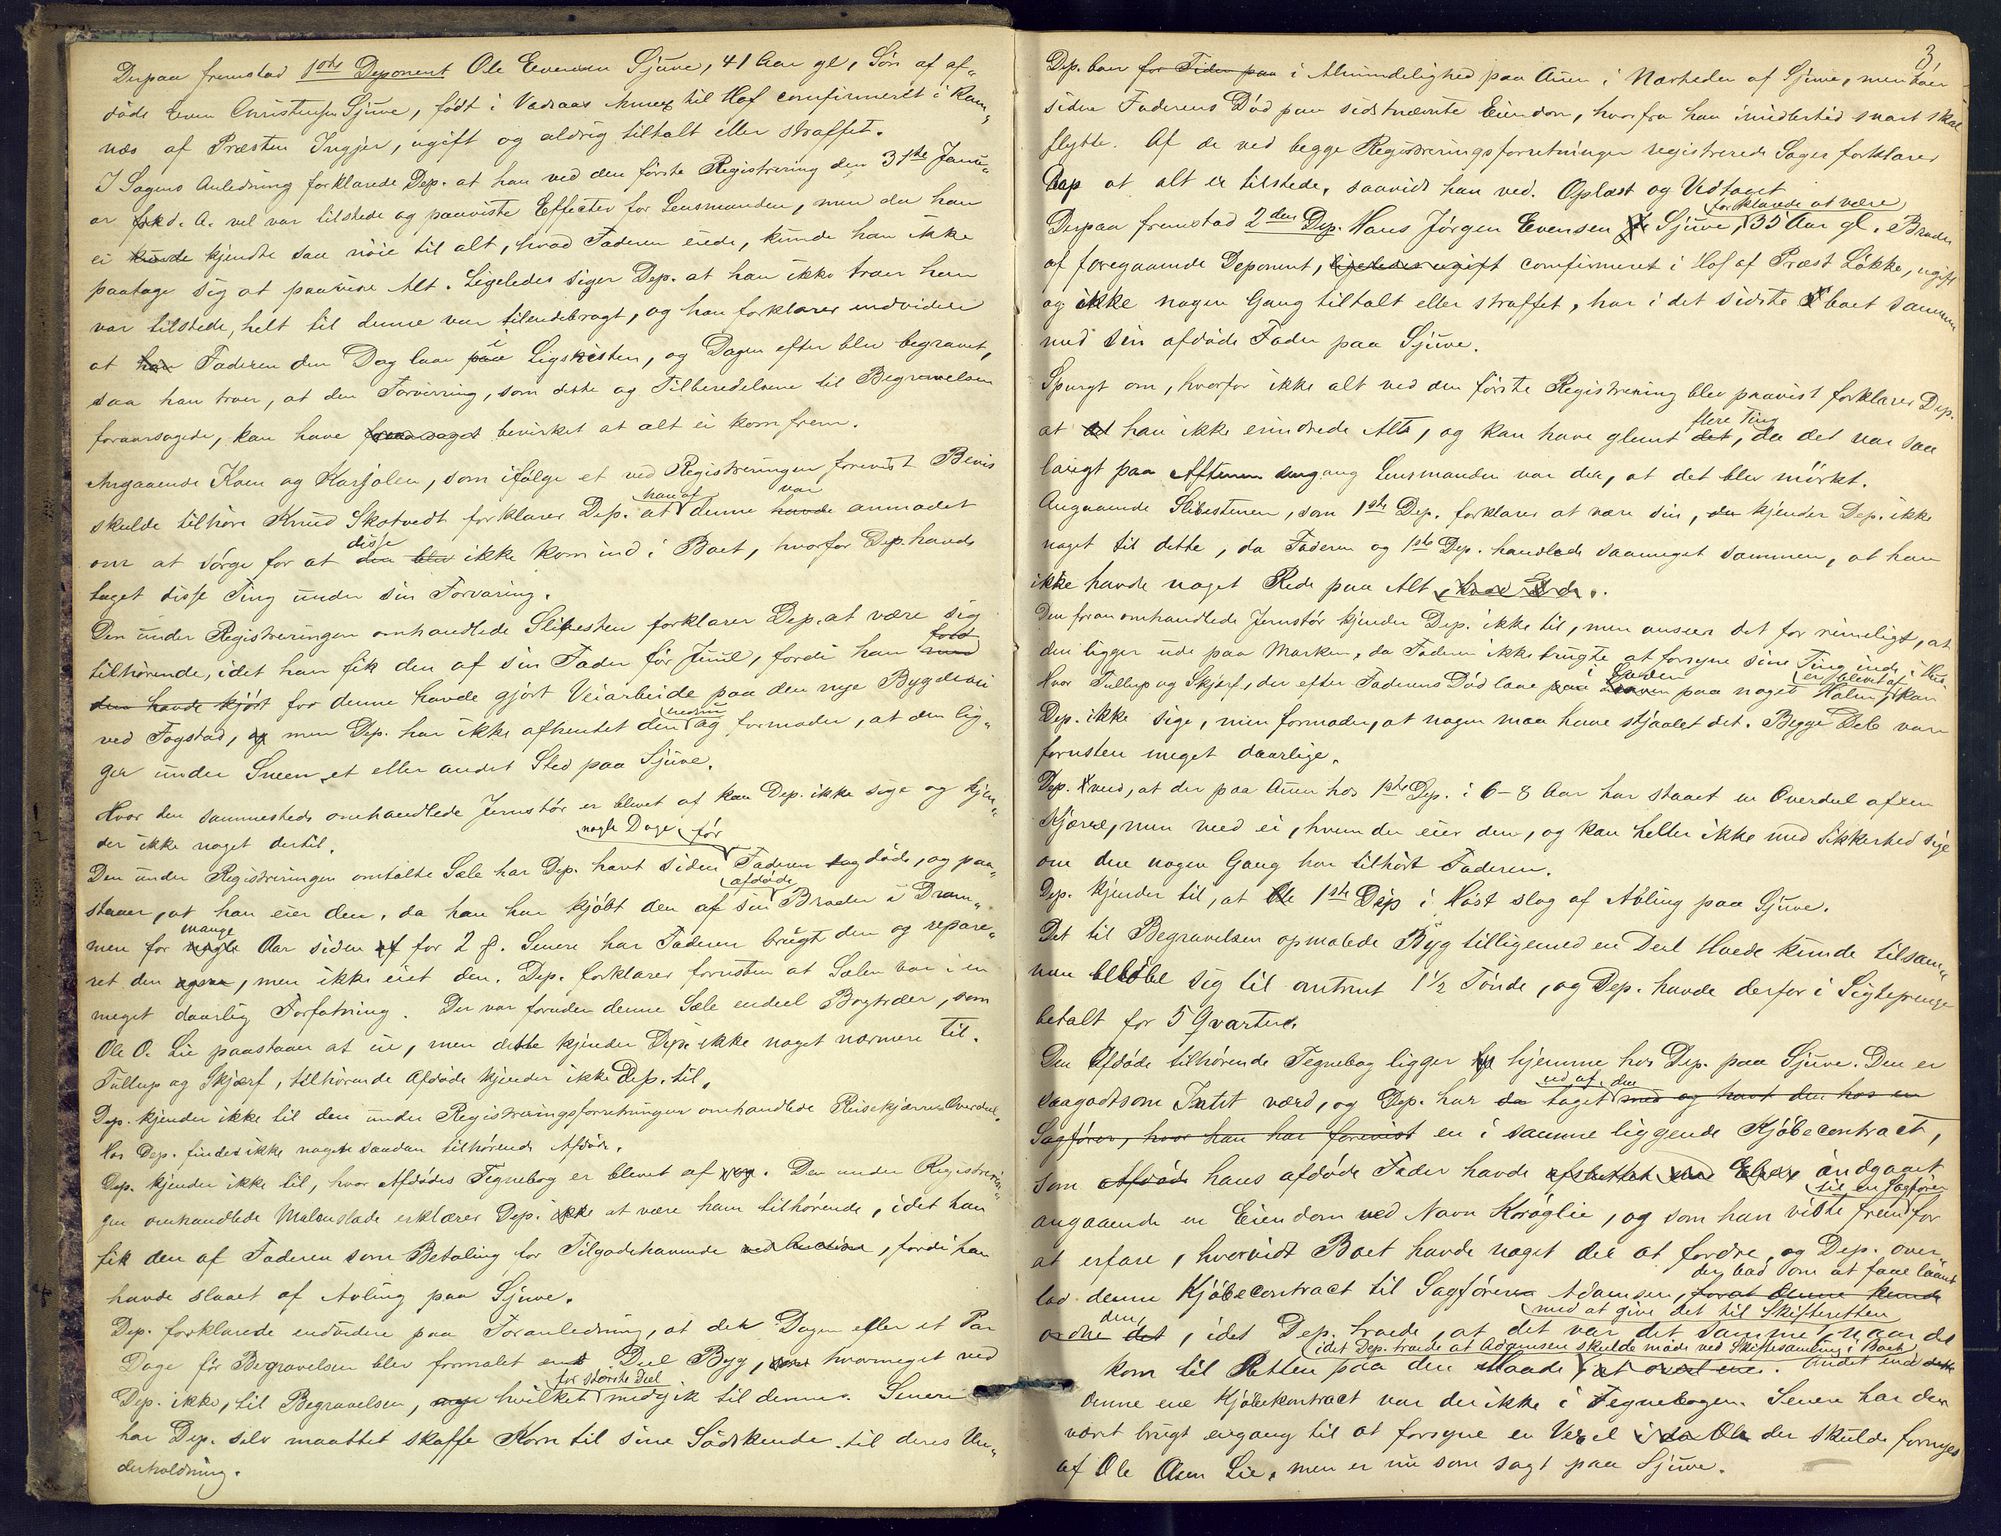 Derpaa fremstod 1ste Deponent Ole Evensen Sjuve, 41 Aar gl, Søn af af-
døde Even Christensen Sjuve, født i Vadraas Annex til Hof confirmeret i Ram-
næs af Præsten Ingjer, ugift og aldrig tiltalt eller straffet.
I Sagens Anledning forklarede Dep. at han ved den første Registrering den 31te Janu-
ar d. A. vel var tilstede og paaviste Effecter for Lensmanden, men da han
ei kunde kjendte saa nøie til alt, hvad Faderen eiede, kunde han ikke
paatage sig at paavise Alt. Ligeledes siger Dep. at han ikke troer han
var tilstede, helt til denne var tilendebragt, og han forklarer endvidere
at han Faderen den Dag laae paa i Ligkisten, og Dagen efter blev begravet,
saa han troer, at den Forvirring, som dette og Tilberedelserne til Begravelsen
foraarsagede, kan have foraarsaget bevirket at alt ei kom frem.
Angaaende Koen og Karjolen, som ifølge et ved Registreringen forevist Bevis
skulde tilhøre Knud Skotvedt forklarer Dep. at han af denne havde var anmodet
om at sørge for at den blev disse ikke kom ind i Boet, hvorfor Dep. havde
taget disse Ting under sin Forvaring.
Den under Registreringen omhandlede Slibesten forklarer Dep. at være sig
tilhørende, idet han fik den af sin Fader før Juul, fordi han med
den havde kjørt for denne havde gjort Veiarbeide paa den nye Bygdevei
ved Fogstad, og men Dep. har ikke afhentet den endnu og formoder, at den lig-
ger under Sneen et eller andet Sted paa Sjuve.
Hvor den sammesteds omhandlede Jernstør er blevet af kan Dep. ikke sige og kjen-
der ikke noget dertil.
Den under Registreringen omtalte Sæle har Dep. havt siden nogle Dage før Faderen døde, og paa-
staaer, at han eier den, da han har kjøbt den af sin afdøde Broder i Dram-
men for nogle mange Aar siden for 2 . Senere har Faderen brugt den og repare-
ret den ogsaa, men ikke eiet den. Dep. forklarer forresten at Sælen var i en
meget daarlig Forfatning. Der var foruden denne Sæle endeel Bogtræer, som
Ole O. Lie paastaaer at eie, men dette kjender Dep. ikke noget nærmere til.
Tullup og Skjærf, tilhørende Afdøde kjender ikke Dep. til.
Dep. kjender ikke til den under Registreringsforretningen omhandlede Reisekjærres Overdeel.
Hos Dep. findes ikke noget saadan tilhørende Afdøde.
Dep. kjender ikke til, hvor Afdødes Tegnebog er blevet af. Den under Registrerin-
gen omhandlede Malenslade erklærer Dep. ikke at være ham tilhørende, idet han
fik den af Faderen som Betaling for Tilgodehavende ved Auction, fordi han
havde slaaet af Avling paa Sjuve.
Dep. forklarede endvidere paa Foranledning, at det Dagen eller et Par
Dage før Begravelsen blev formalet en Deel Byg, hvormeget ved
Dep. ikke, til Begravelsen, hvilket for største Deel medgik til denne. Senere
har Dep. selv maattet skaffe Korn til sine Sødskende til deres Un-
derholdning.
3
Dep. boer for Tiden paa i Almindelighed paa Auen i Nærheden af Sjuve, men boer
siden Faderens Død paa sidstnævnte Eiendom, hvorfra han imidlertid snart skal
flytte. Af de ved begge Registreringsforretninger registrerede Sager forklarer
Dep at alt er tilstede, saavidt han ved. Oplæst og Vedtaget
Derpaa fremstod 2den Dep. Hans Jørgen Evensen Sjuve, forklarede at være 35 Aar gl. Broder
af foregaaende Deponent, ligeledes ugift confirmeret i Hof af Præst Løkke, ugift
og ikke nogen Gang tiltalt eller straffet, har i det sidste boet sammen
med sin afdøde Fader paa Sjuve.
Spurgt om, hvorfor ikke alt ved den første Registrering blev paavist forklarer Dep.
at han ikke erindrede Alt, og kan have glemt det, flere Ting da det var saa
langt paa Aftenen engang Lensmanden var der, at det blev mørkt.
Angaaende Slibestenen, som 1ste Dep. forklarer at være sin, kjender Dep. ikke
noget til dette, da Faderen og 1ste Dep. handlede saameget sammen, at han
ikke havde noget Rede paa Alt.
Den foran omhandlede Jernstør kjender Dep. ikke til, men anseer det for rimeligt, at
den ligger ude paa Marken, da Faderen ikke brugte at forsyne sine Ting inde i Hus
Hvor Tullup og Skjærf, der efter Faderens Død laae paa i Laaven paa noget Halm, er blevet af kan
Dep. ikke sige, men formoder, at nogen maa have stjaalet det. Begge Dele vare
forresten meget daarlige.
Dep. veed, at der paa Auen hos 1ste Dep. i 6-8 Aar har staaet en Overdeel af en
Kjærre, men veed ei, hvem der eier den, og kan heller ikke med Sikkerhed sige
om den nogen Gang har tilhørt Faderen.
Dep. kjender til, at 1ste Dep i Høst slog af Avling paa Sjuve.
Det til Begravelsen opmalede Byg tilligemed en Deel Hvede kunde tilsam-
men beløbe sig til omtrent 1½ Tønde, og Dep. havde derfor i Sigtepenge
betalt for 5 Qvarter.
Den Afdøde tilhørende Tegnebog ligger hjemme hos Dep. paa Sjuve. Den er
saagodtsom Intet værd, og Dep. har da taget ud af den med og havt den hos en
Sagfører, hvor han har forevist en i samme liggende Kjøbecontract,
som Afdøde hans afdøde Fader havde afsluttet indgaaet
angaaende en Eiendom ved Navn Koraglie, og som han viste frem til en Sagfører for
at erfare, hvorvidt Boet havde noget der at fordre, og Dep. over-
lod denne Kjøbecontract til Sagfører Adamsen, der bad om at faae laant forat denne kunde
ordne det, den, idet Dep. troede, at det var det samme, med at give det til Skifteretten naar det
kom til Retten paa den Maade idet Dep. troede at Adamsen skulde møde ved Skiftesamling i Boet. Andet end dette
denne ene Kjøbekontract var der ikke i Tegnebogen. Senere har den
været brugt engang til at forsyne en Vexel i da Ole der skulde fornyes
af Ole Olsen Lie, men er nu som sagt paa Sjuve.